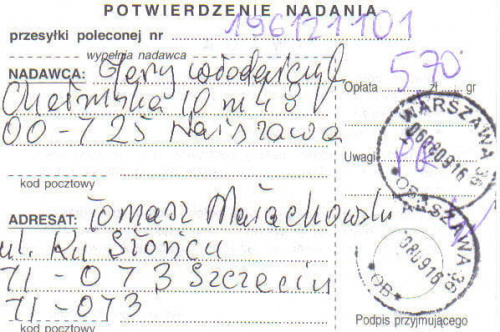 POTWIERDZENIE NADANIA
przesyłki poleconej nr 196121101
wypełnia nadawca
NADAWCA: Jerzy Włodarczyk
Chełmska 10 m 43
00-725 Warszawa
kod pocztowy
Opłata 5,70 zł gr
Uwagi
WARSZAWA 36
OB
ADRESAT: Tomasz Małachowski
ul. Ku Słońcu
71-073 Szczecin
71-073
kod pocztowy
WARSZAWA 36
OB
Podpis przyjmującego